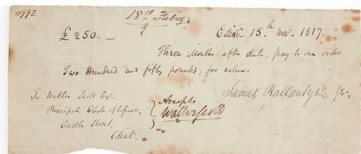 18th Feby
£250 — Edinr 15th Novr 1817.
Three Months after date, pay to our order
Two Hundred and fifty pounds, for value.
James Ballantyne & Co.
To Walter Scott Esqr
Principal Clerk of Session
Castle Street,
Edinr.
Accepts
Walter Scott